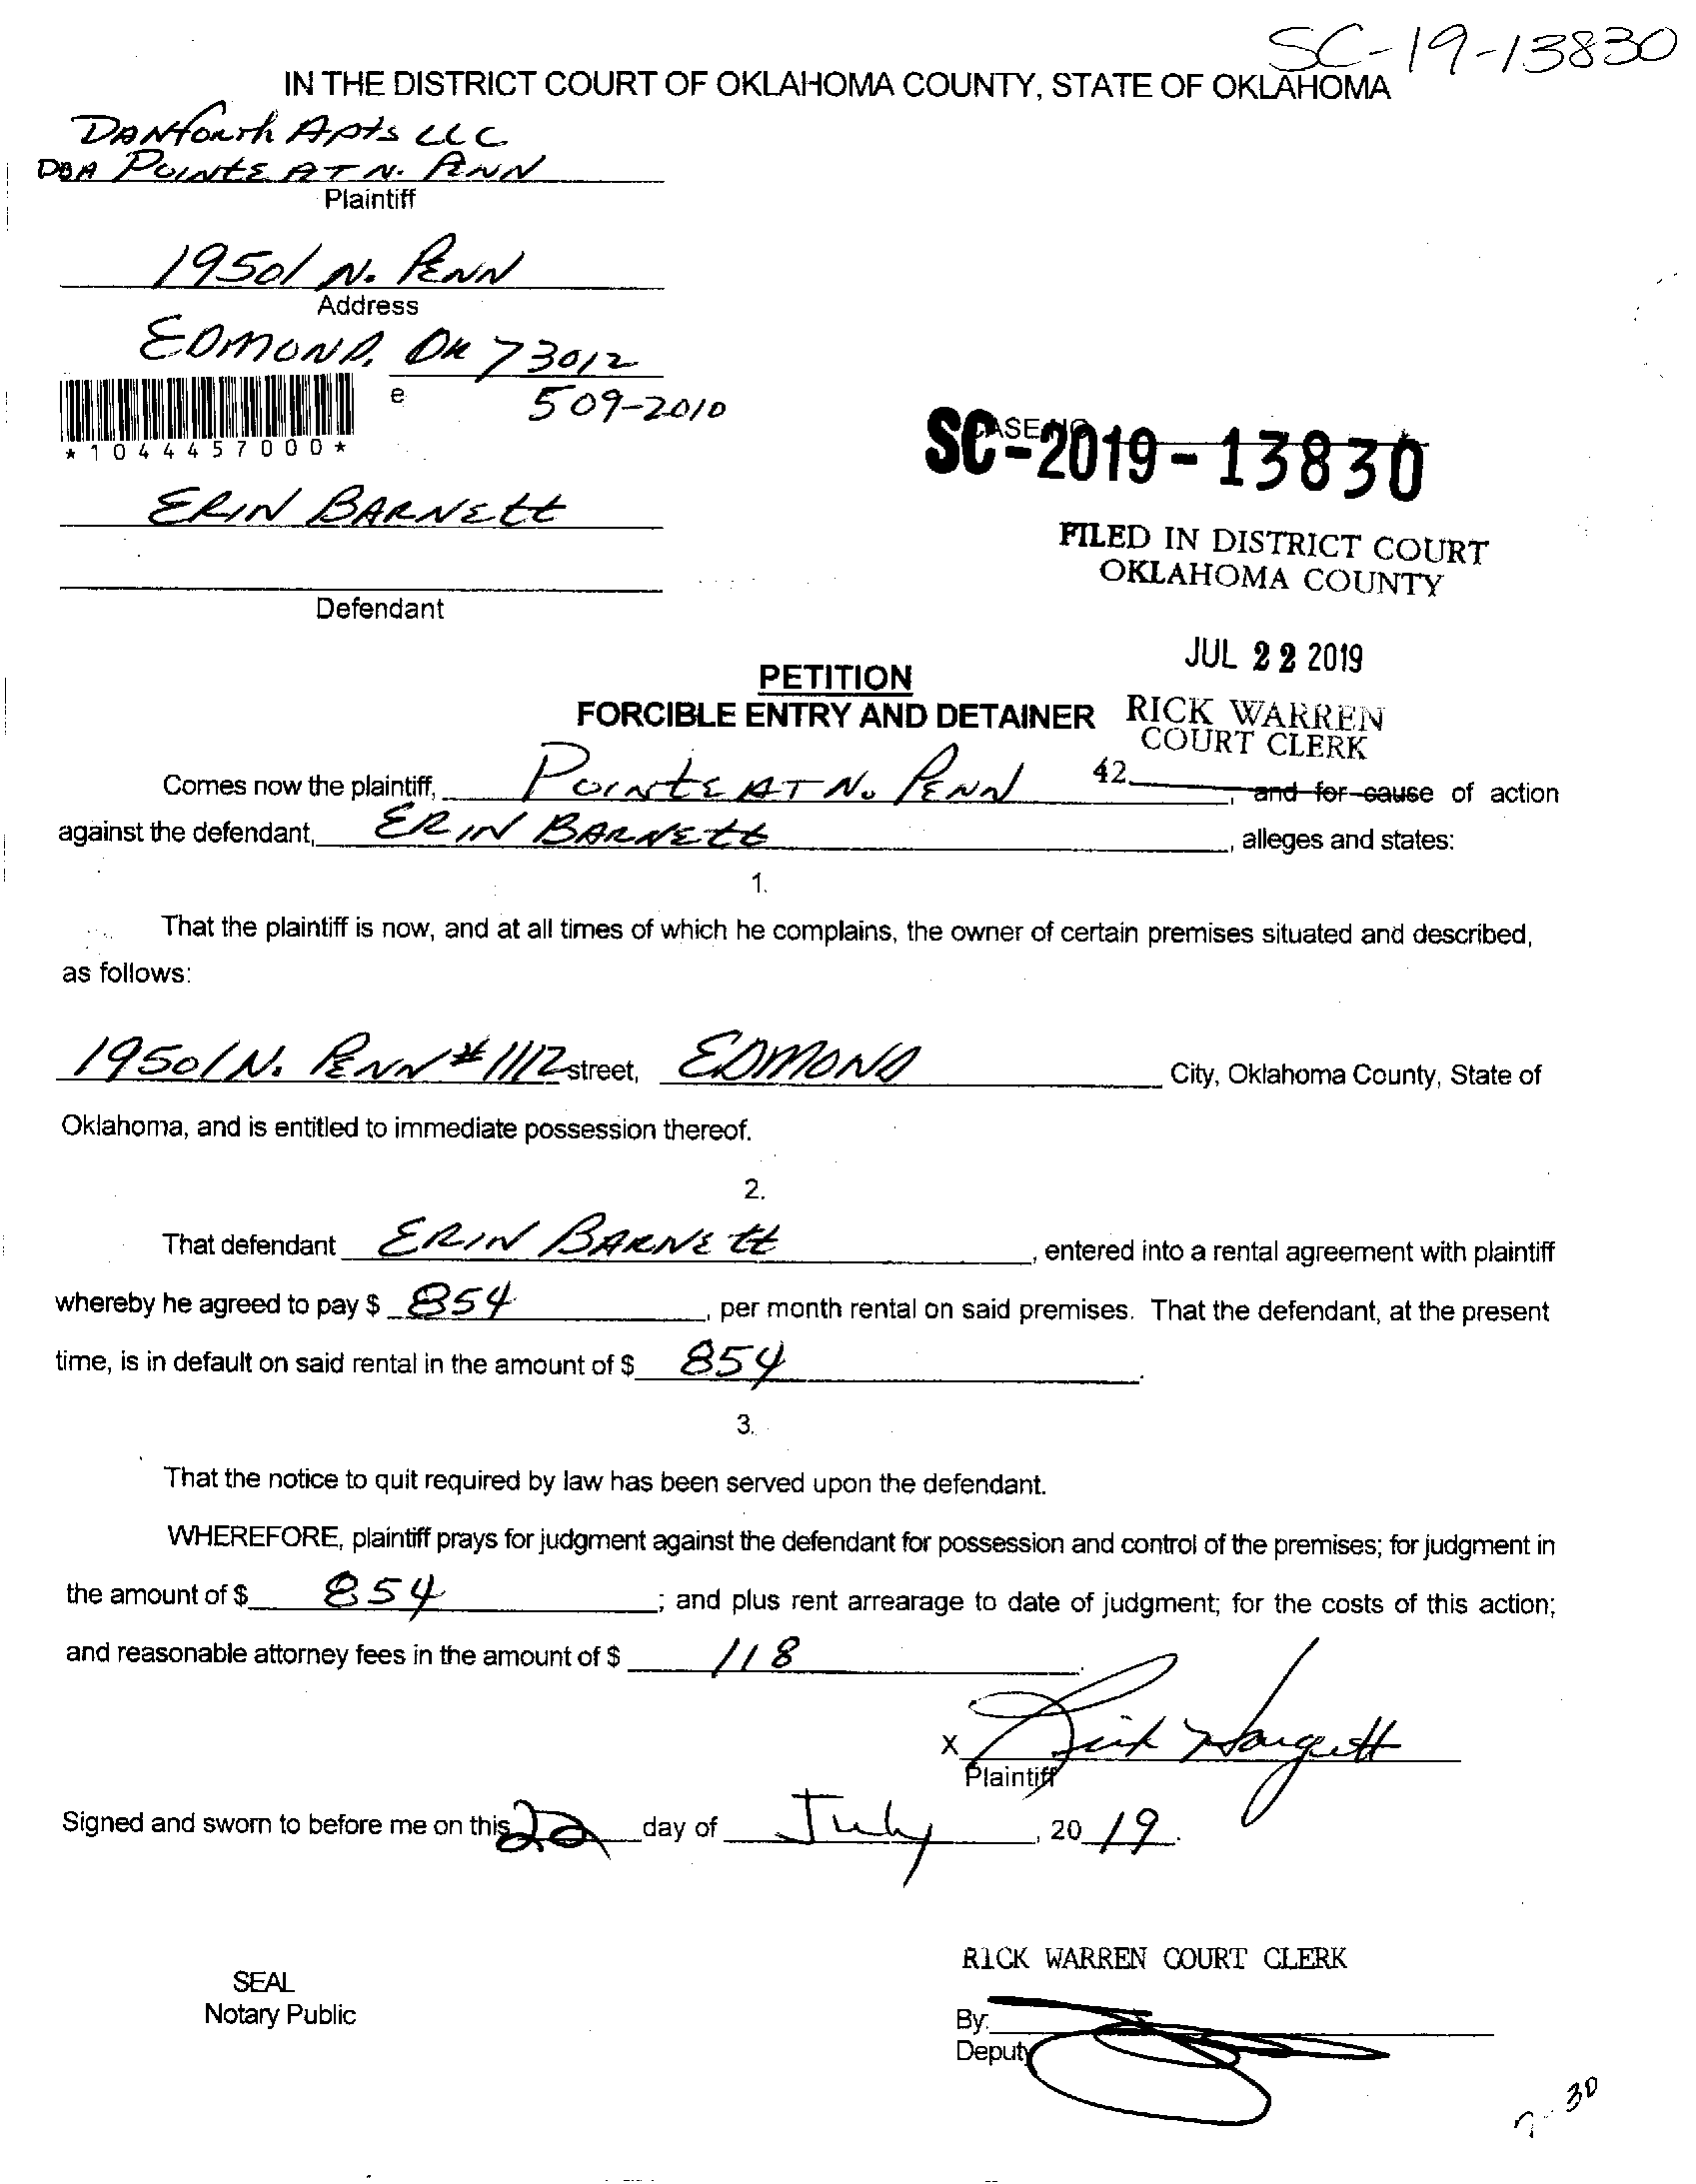 SC-19-13830
IN THE DISTRICT COURT OF OKLAHOMA COUNTY, STATE OF OKLAHOMA
DANforth Apts LLC
DBA POINTE AT N. PENN
Plaintiff
19501 N. PENN
Address
EDMOND, OK 73012
e 509-2010
*1044457000*
CASE NO
SC-2019-13830
ERIN BARNEtt
FILED IN DISTRICT COURT
OKLAHOMA COUNTY
Defendant
JUL 22 2019
PETITION
FORCIBLE ENTRY AND DETAINER
RICK WARREN
COURT CLERK
42
Comes now the plaintiff, POINtE AT N. PENN, and for cause of action
against the defendant, ERIN BARNEtt, alleges and states:
1.
That the plaintiff is now, and at all times of which he complains, the owner of certain premises situated and described,
as follows:
19501 N. PENN #1112 street, EDMOND City, Oklahoma County, State of
Oklahoma, and is entitled to immediate possession thereof.
2.
That defendant ERIN BARNEtt, entered into a rental agreement with plaintiff
whereby he agreed to pay $ 854, per month rental on said premises. That the defendant, at the present
time, is in default on said rental in the amount of $ 854.
3.
That the notice to quit required by law has been served upon the defendant.
WHEREFORE, plaintiff prays for judgment against the defendant for possession and control of the premises; for judgment in
the amount of $ 854; and plus rent arrearage to date of judgment; for the costs of this action;
and reasonable attorney fees in the amount of $ 118.
X
Plaintiff
Signed and sworn to before me on this 22 day of July, 20 19.
RICK WARREN COURT CLERK
SEAL
Notary Public
By:
Deputy
7-30